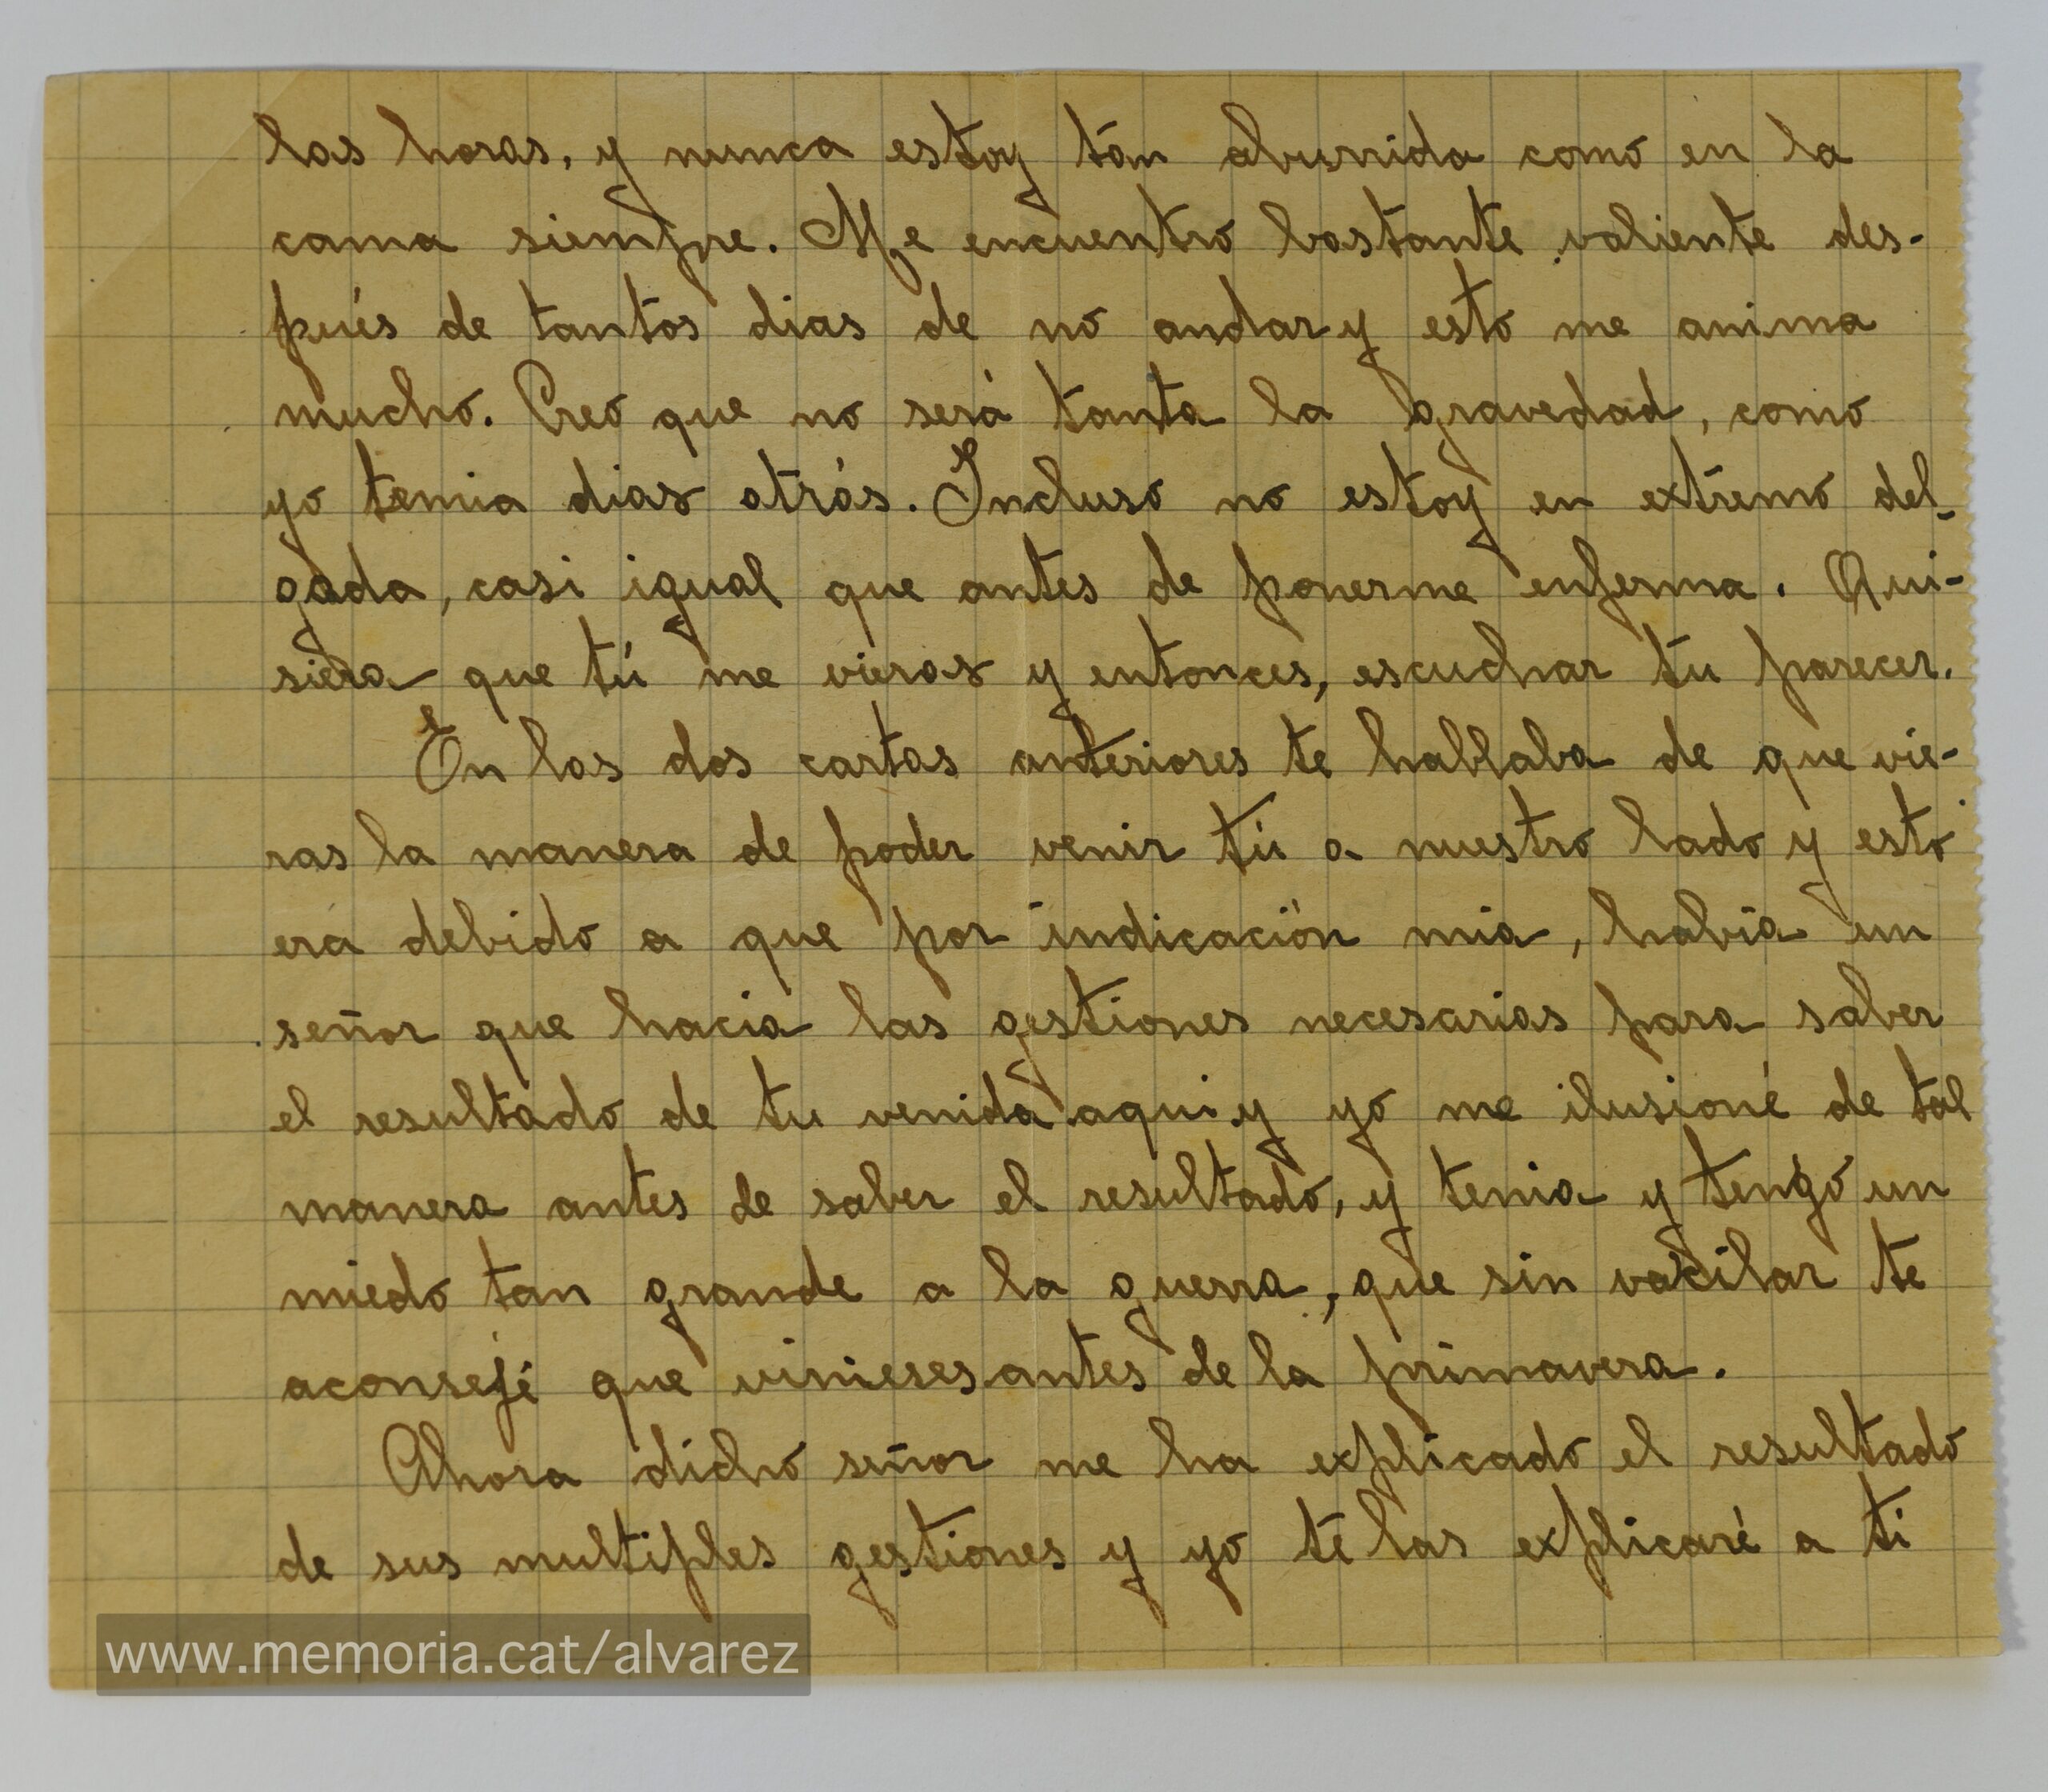 las horas, y nunca estoy tan aburrida como en la
cama siempre. Me encuentro bastante valiente des-
pués de tantos dias de no andar y esto me anima
mucho. Creo que no será tanta la gravedad, como
yo temia dias atrás. Incluso no estoy en extremo del-
gada, casi igual que antes de ponerme enferma. Qui-
siera que tú me vieras y entonces, escuchar tu parecer.
En las dos cartas anteriores te hablaba de que vie-
ras la manera de poder venir tú a nuestro lado y esto
era debido a que por indicación mia, había un
señor que hacia las gestiones necesarias para saber
el resultado de tu venida aqui y yo me ilusioné de tal
manera antes de saber el resultado, y tenia y tengo un
miedo tan grande a la guerra, que sin vacilar te
aconsejé que vinieses antes de la primavera.
Ahora dicho señor me ha explicado el resultado
de sus multiples gestiones y yo te las explicaré a ti
www.memoria.cat/alvarez